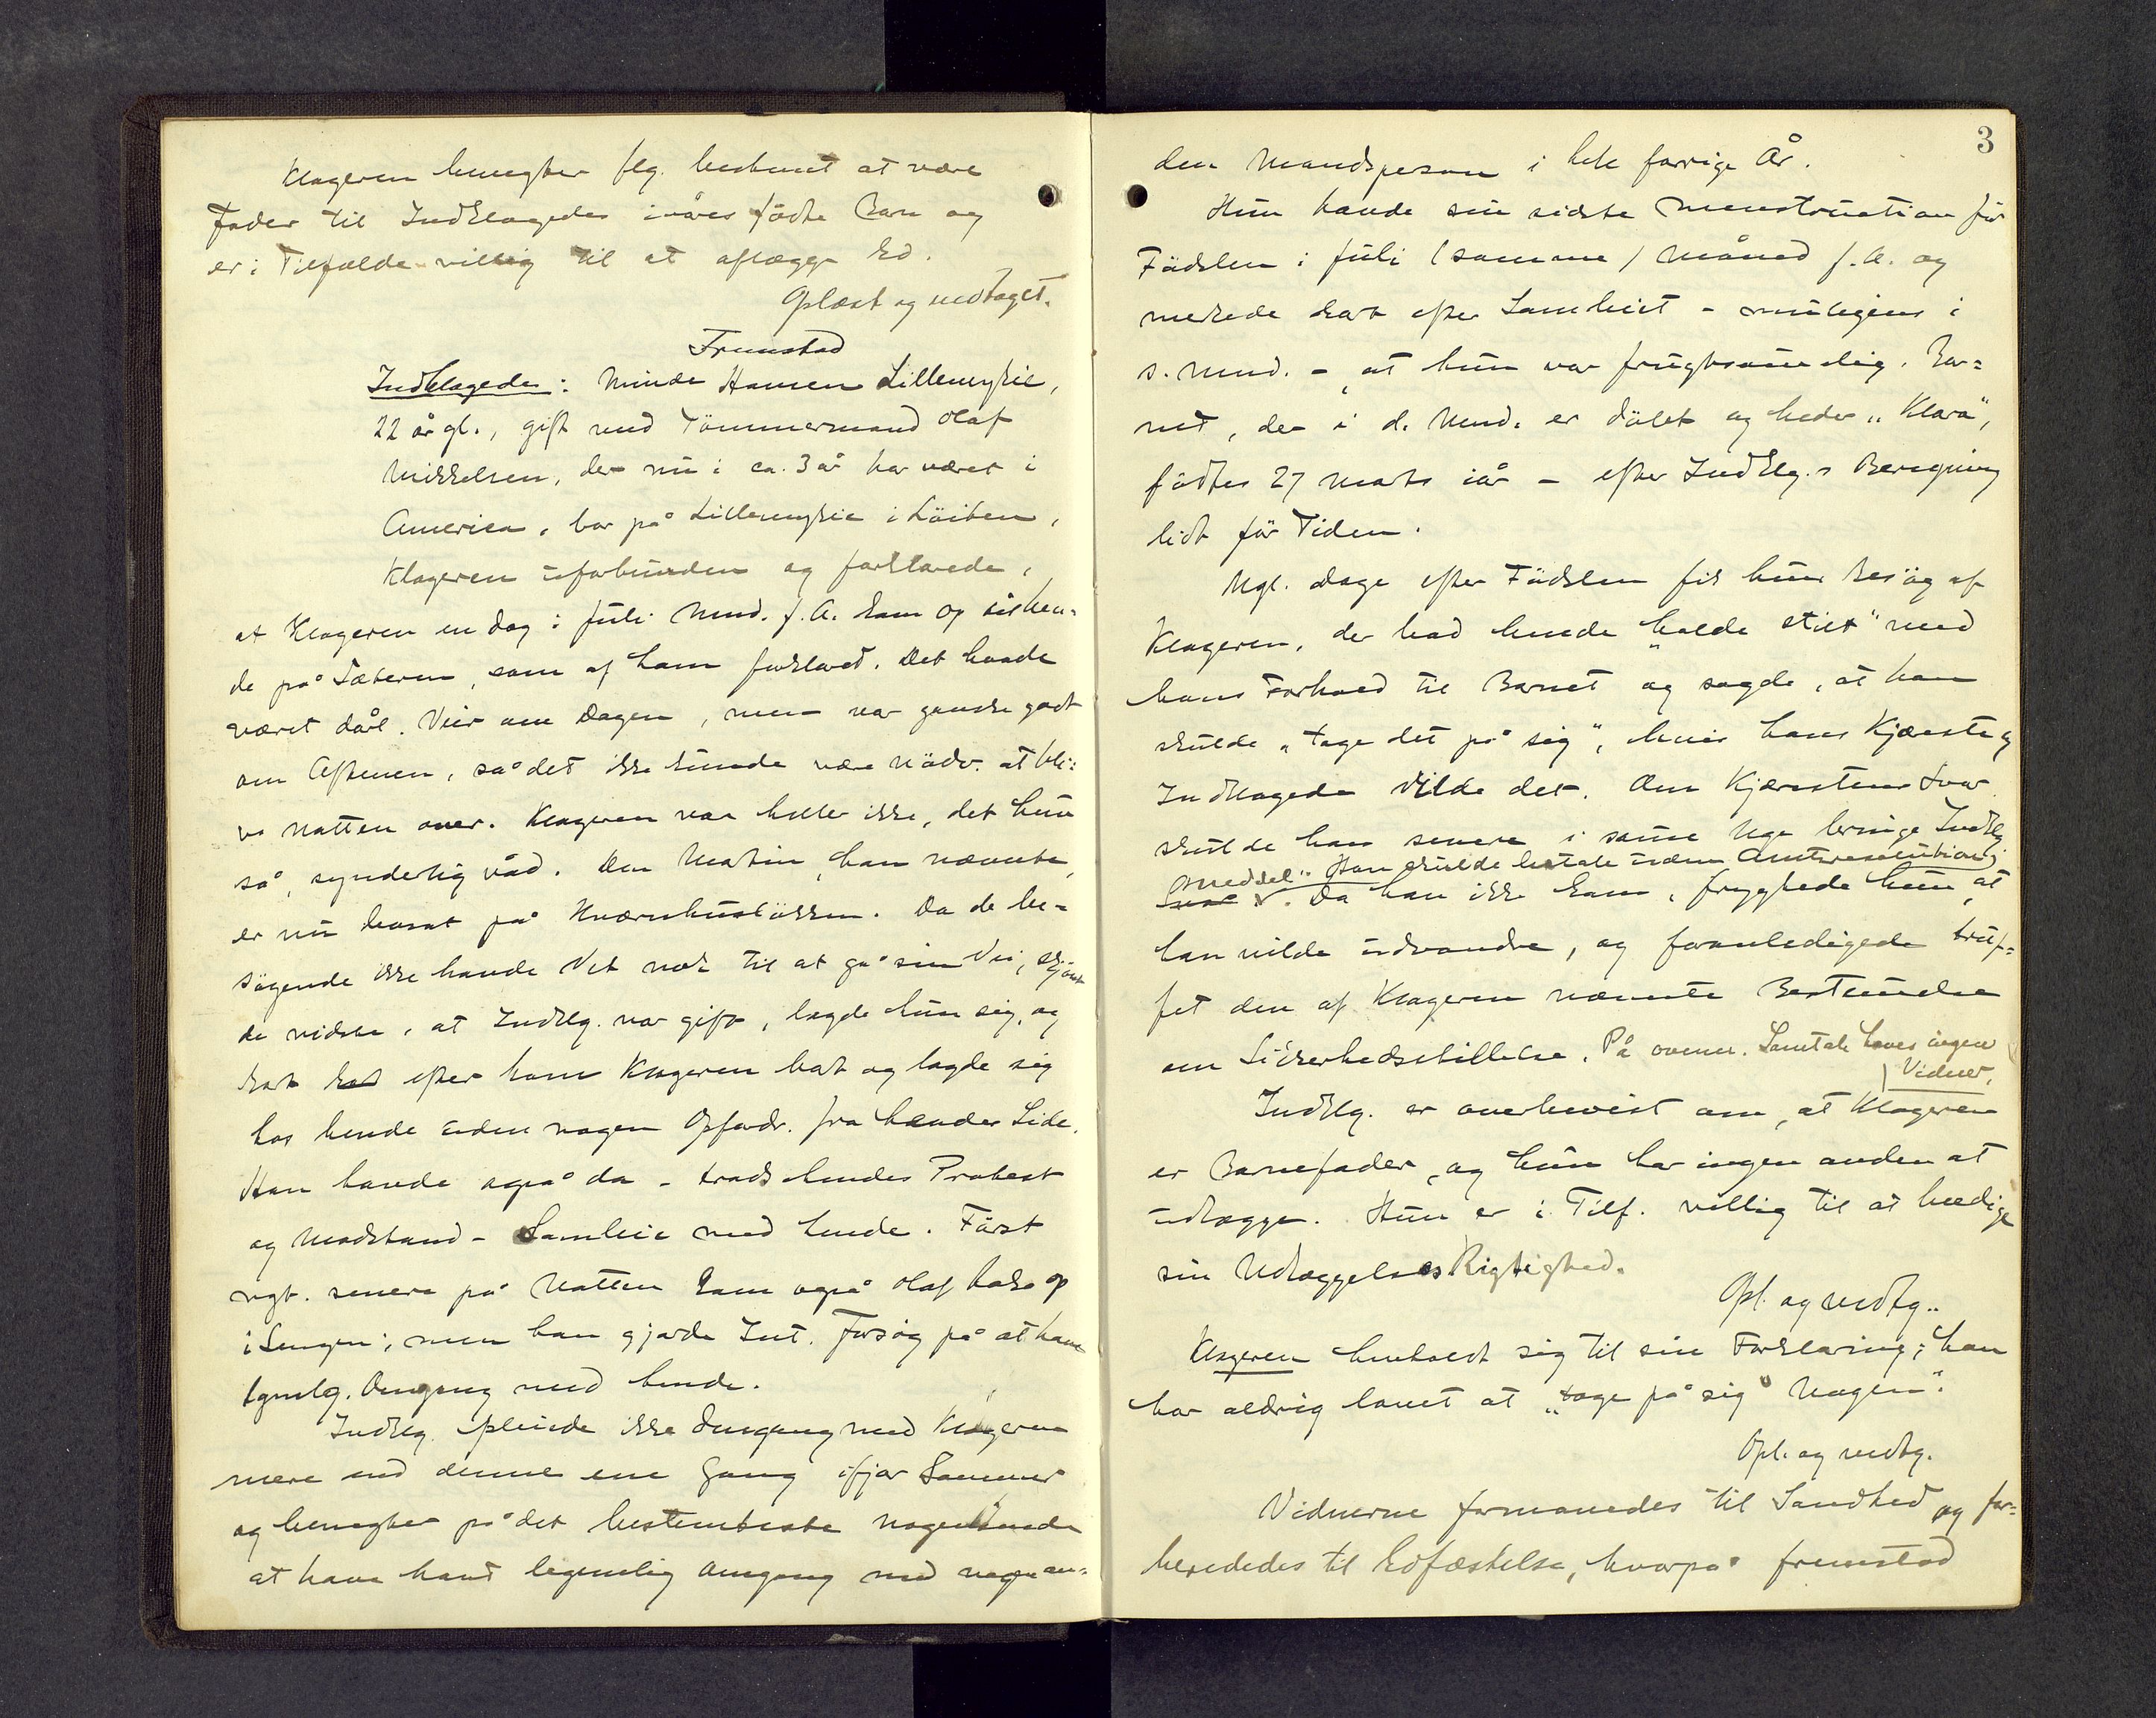 Klageren benegter flg. bestemt at være
Fader til Indklagedes iaares fødte Barn og
er i Tilfælde villig til at aflægge Ed.
Oplæst og vedtaget.
Fremstod
Indklagede: Minda Hansen Lillemyhie,
22 år gl., gift med Tømmermand Olaf
Mikkelsen, der nu i ca. 3 år har været i
America, bor på Lillemyhie i Løiten,
Klageren uforbunden og forklarede,
at Klageren en Dag i Juli Mnd. f. A. kom op til hen-
de på Sæteren, som af ham forklaret. Det havde
været dårl. Veir om Dagen, men var ganske godt
om Aftenen, så det ikke kunde være nødv. at bli-
ve Natten over. Klageren var heller ikke, det hun
så, synderlig våd. Den Martin, han nævnte,
er nu bosat på Kværnhusløkken. Da de be-
søgende ikke havde Vet nok til at gå sin Vei, skjønt
de vidste, at Indklg. var gift, lagde hun sig, og
kort efter kom Klageren bort og lagde sig
hos hende uden nogen Opfordr. fra hendes Side.
Han havde også da - trods hendes Protest
og Modstand - Samleie med hende. Først
ngt. senere på Natten kom også Olaf op
i Sengen; men han gjorde Int. Forsøg på at have
lgmlg. Omgang med hende.
Indklg. pleiede ikke Omgang med Klageren
mere end denne ene Gang ifjor Sommer
og benegter på det bestemteste nogensinde
at have havt legemlig Omgang med nogen an-
3
den Mandsperson i hele forrige År.
Hun havde sin sidste Menstruation før
Fødslen i Juli (samme) Måned f. A. og
merkede kort efter Samleiet - muligens i
s. Mnd. - at hun var frugtsommelig. Bar-
net, der i d. Mnd. er døbt og heder "Klara",
fødtes 27 Marts iår - efter Indklg.s Beregning
lidt før Tiden.
Ngl. Dage efter Fødslen fik hun Besøg af
Klageren, der bad hende "holde stilt" med
hans Forhold til Barnet og sagde, at han
skulde "tage det på sig", hvis hans Kjæreste og
Indklagede vilde det. Om Kjærestens Svar
skulde han senere i samme Uge bringe Indklg
Meddel. Han skulde betale uden Amtsresolution;
Svar. Da han ikke kom, frygtede hun, at
han vilde udvandre, og foranledigede truf-
fet den af Klageren nævnte Bestemmelse
om Sikkerhedsstillelse. På ovenn. Samtale haves ingen
Vidner.
Indklg. er overbevist om, at Klageren
er Barnefader, og hun har ingen anden at
udlægge. Hun er i Tilf. villig til at beedige
sin Udlæggelses Rigtighed.
Opl. og vedtg..
Klageren henholdt sig til sin Forklaring; han
har aldrig lovet at "tage på sig" Nogen".
Opl. og vedtg.
Vidnerne formanedes til Sandhed og for-
beredes til Edfæstelse, hvorpå fremstod